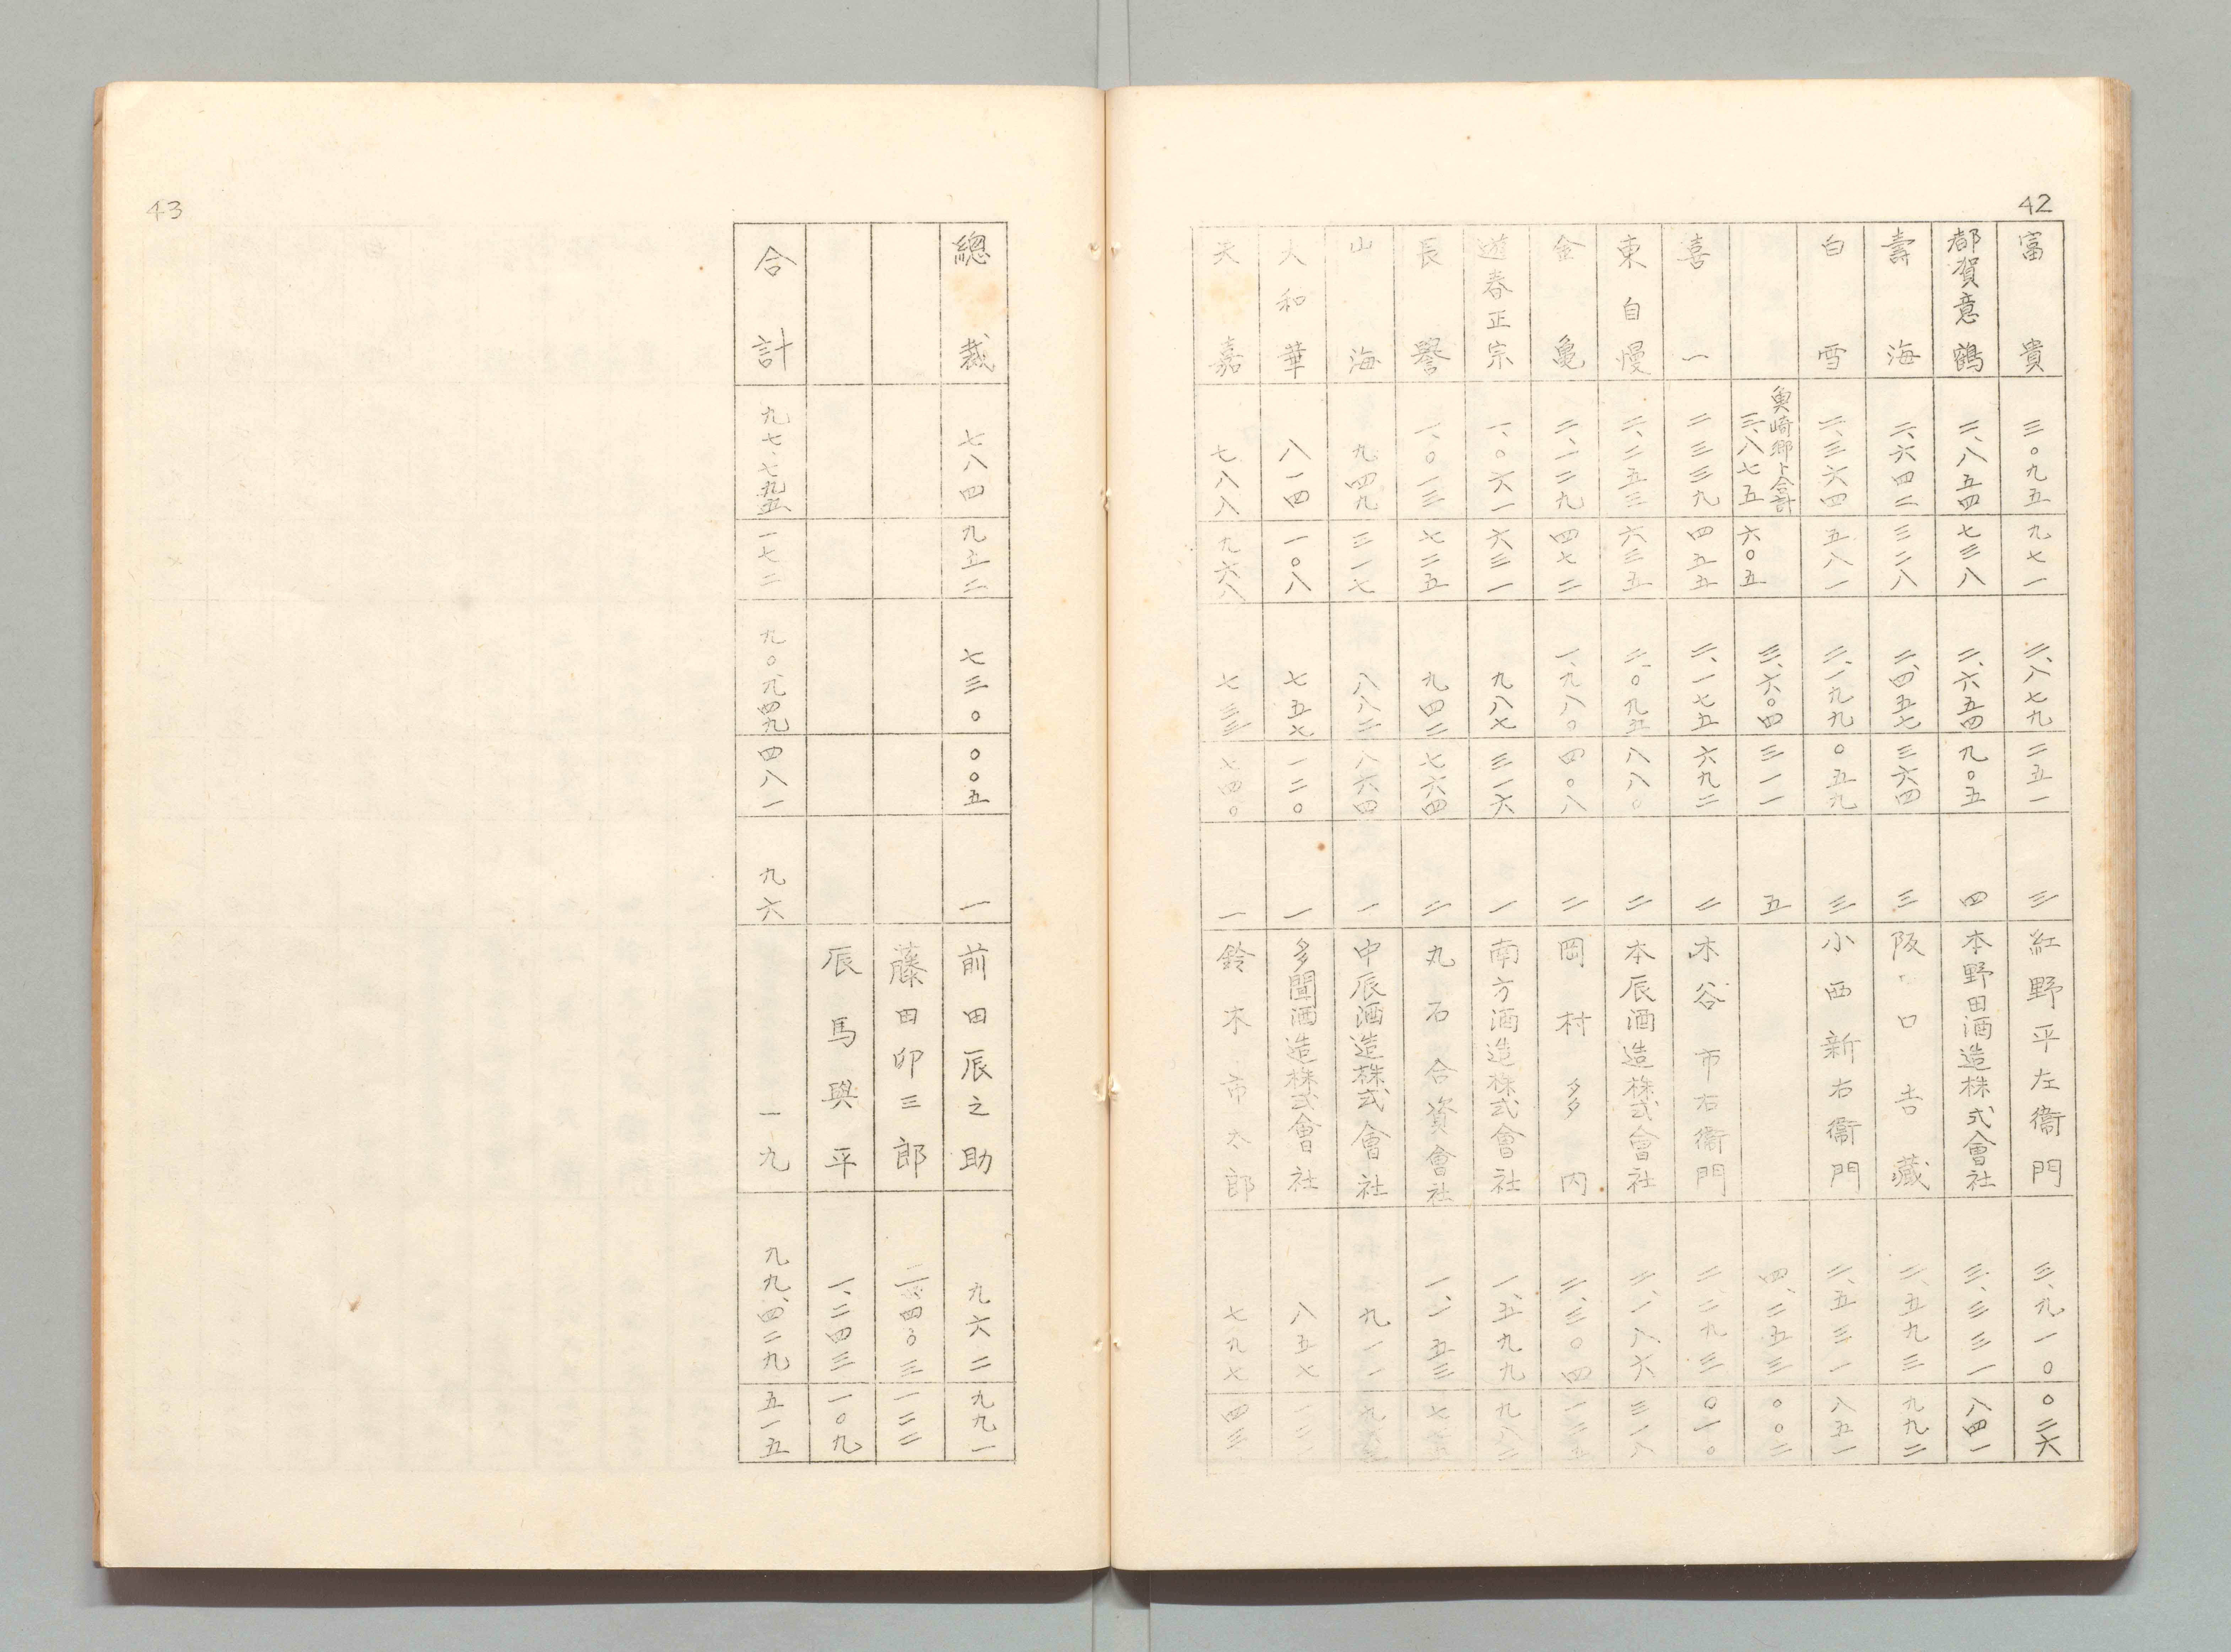 42
富貴 三〇九五 九七一 二、八七九 二五一 三 紅野平左衞門 三、九一〇 〇二六
都賀意鶴 二、八五四 七三八 二、六五四 九〇五 四 本野田酒造株式會社 三、三三一 八四一
壽海 二、六四二 三二八 二、四五七 三六四 三 阪口吉藏 二、五九三 九九二
白雪 二、三六四 五八一 二、一九九 〇五九 三 小西新右衞門 二、五三一 八五一
魚崎郷ト合計 三、八七五 六〇五 三、六〇四 三一一 五 四、二五三 〇〇二
喜一 二三三九 四五五 二、一七五 六九二 二 木谷市右衞門 二、二九三 〇一〇
東自慢 二、二五三 六三五 二、〇九五 八八〇 二 本辰酒造株式會社 二、一八六 三一八
金亀 二、一二九 四七二 一、九八〇 四〇八 二 岡村多内 二、三〇四
遊春正宗 一、〇六一 六三一 九八七 三一六 一 南方酒造株式會社 一、五九九 九八二
長譽 一、〇一三 七二五 九四二 七六四 二 丸石合資會社 一、一五三
山海 九四九 三一七 八八二 八六四 一 中辰酒造株式會社 九一一
大和華 八一四 一〇八 七五七 一二〇 一 多聞酒造株式會社 八五七
天嘉 七八八 九六八 七三三 七四〇 一 鈴木市太郎 七九七
43
總裁 七八四 九五二 七三〇 〇〇五 一 前田辰之助 九六二 九九一
藤田卯三郎 一二二
辰馬與平 一、二四三 一〇九
合計 九七、七九五 一七二 九〇、九四九 四八一 九六 一九 九九、四二九 五一五